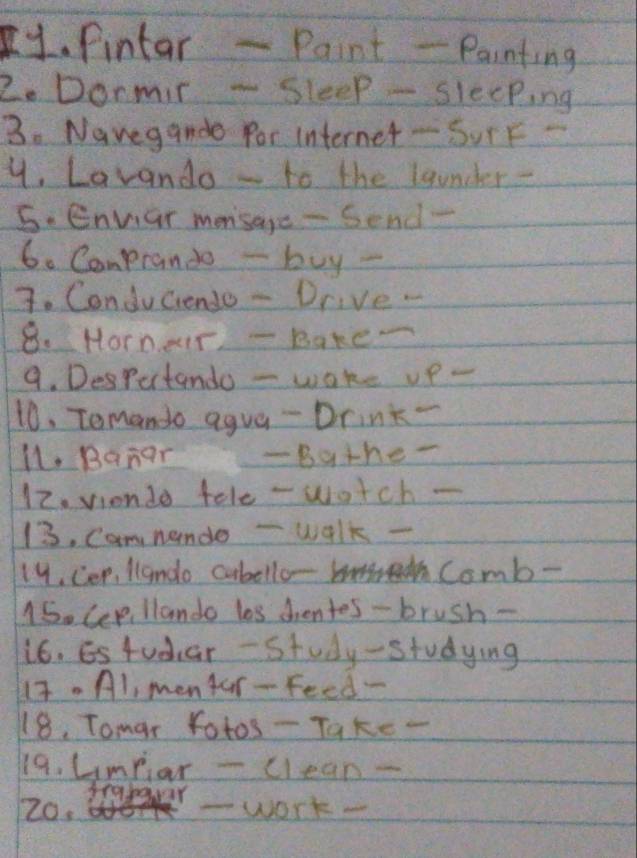 1. Pintar - Paint - Painting
2. Dormir - Sleep - Sleeping
3. Navegando por internet - Surf -
4. Lavando - to the launder -
5. Enviar mensaje - Send -
6. Comprando - buy -
7. Conduciendo - Drive -
8. Hornear - Bake -
9. Despertando - wake up -
10. Tomando agua - Drink -
11. Bañar - Bathe -
12. viendo tele - watch -
13. Caminando - walk -
14. Cepillando cabello - Comb -
15. Cepillando los dientes - brush -
16. Estudiar - Study - Studying
17. Alimentar - Feed -
18. Tomar Fotos - Take -
19. Limpiar - Clean -
20. trabajar - work -